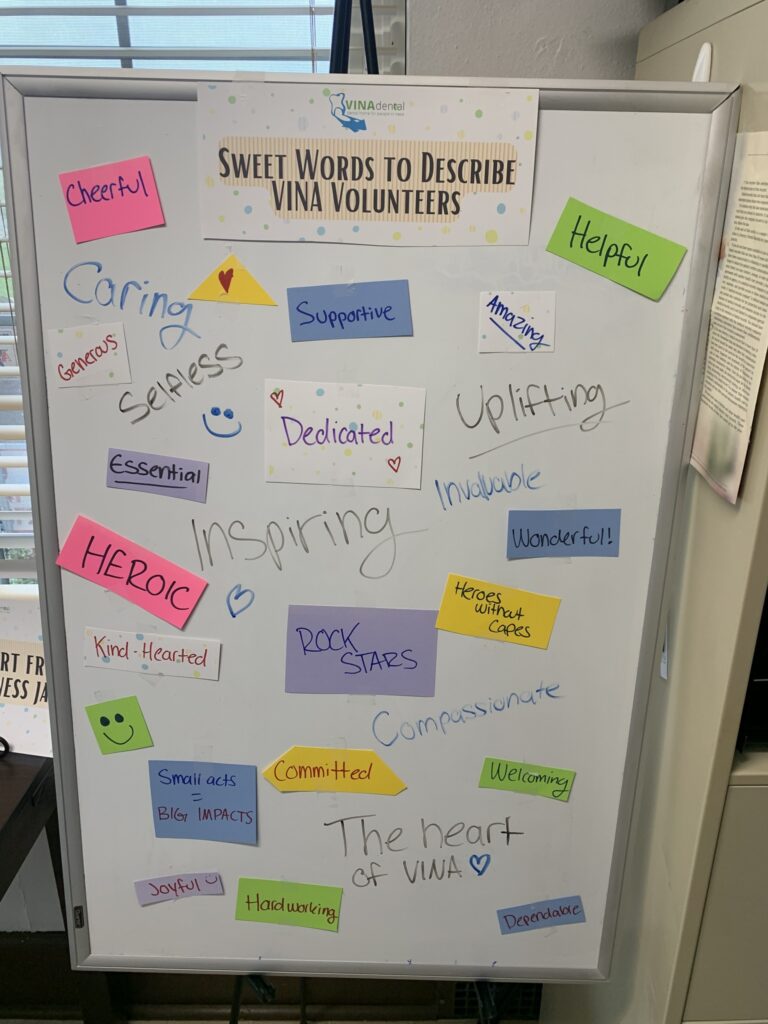 VINAdental
SWEET WORDS TO DESCRIBE
VINA VOLUNTEERS
Cheerful
Helpful
Caring
Supportive
Amazing
Generous
Selfless
Uplifting
Dedicated
Essential
Invaluable
Inspiring
Wonderful!
HEROIC
Heroes
without
Capes
ROCK
STARS
Kind-Hearted
RT FR
NESS JA
Compassionate
Small acts
=
BIG IMPACTS
Committed
Welcoming
The heart
of VINA
Joyful
Hardworking
Dependable